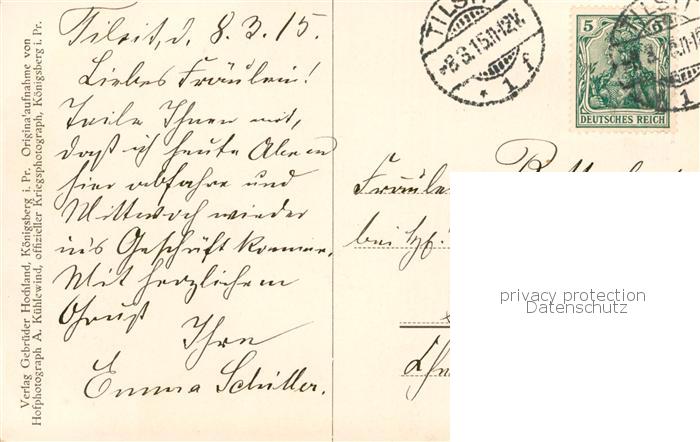 Tilsit, d. 8.3.15.
Liebes Fräulein!
Teile Ihnen mit,
daß ich heute Abend
hier abfahre und
Mittwoch wieder
ins Geschäft komme.
Mit herzlichem
Gruß
Ihre
Emma Schüller.
Verlag Gebrüder Hochland, Königsberg i. Pr. Originalaufnahme von
Hofphotograph A. Kühlewind, offizieller Kriegsphotograph, Königsberg i. Pr.
TILSIT
-8.3.15.11-12V.
* 1 f
5
DEUTSCHES REICH
TILSIT
1
Fräulein
bei
privacy protection
Datenschutz